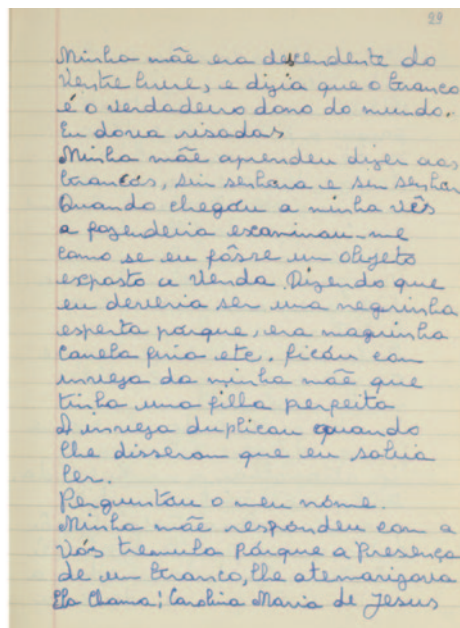 29
Minha mãe era decendente do
Ventre livre, e dizia que o branco
é o verdadeiro dono do mundo.
Eu dava risadas
Minha mãe aprendeu dizer aos
brancos, sim senhora e sim senhor
Quando chegou a minha vês
a fazendeira examinou-me
como se eu fôsse um objeto
exposto a venda. Dizendo que
eu deveria ser uma negrinha
esperta pórque, era magrinha
canela fina etc. ficou com
inveja da minha mãe que
tinha uma filha perfeita
A inveja duplicou quando
lhe disseram que eu sabia
ler.
Perguntou o meu nóme.
Minha mãe respondeu com a
vós tremula pórque a presença
de um branco, lhe atemorizava
Ela chama: Carolina Maria de Jesus